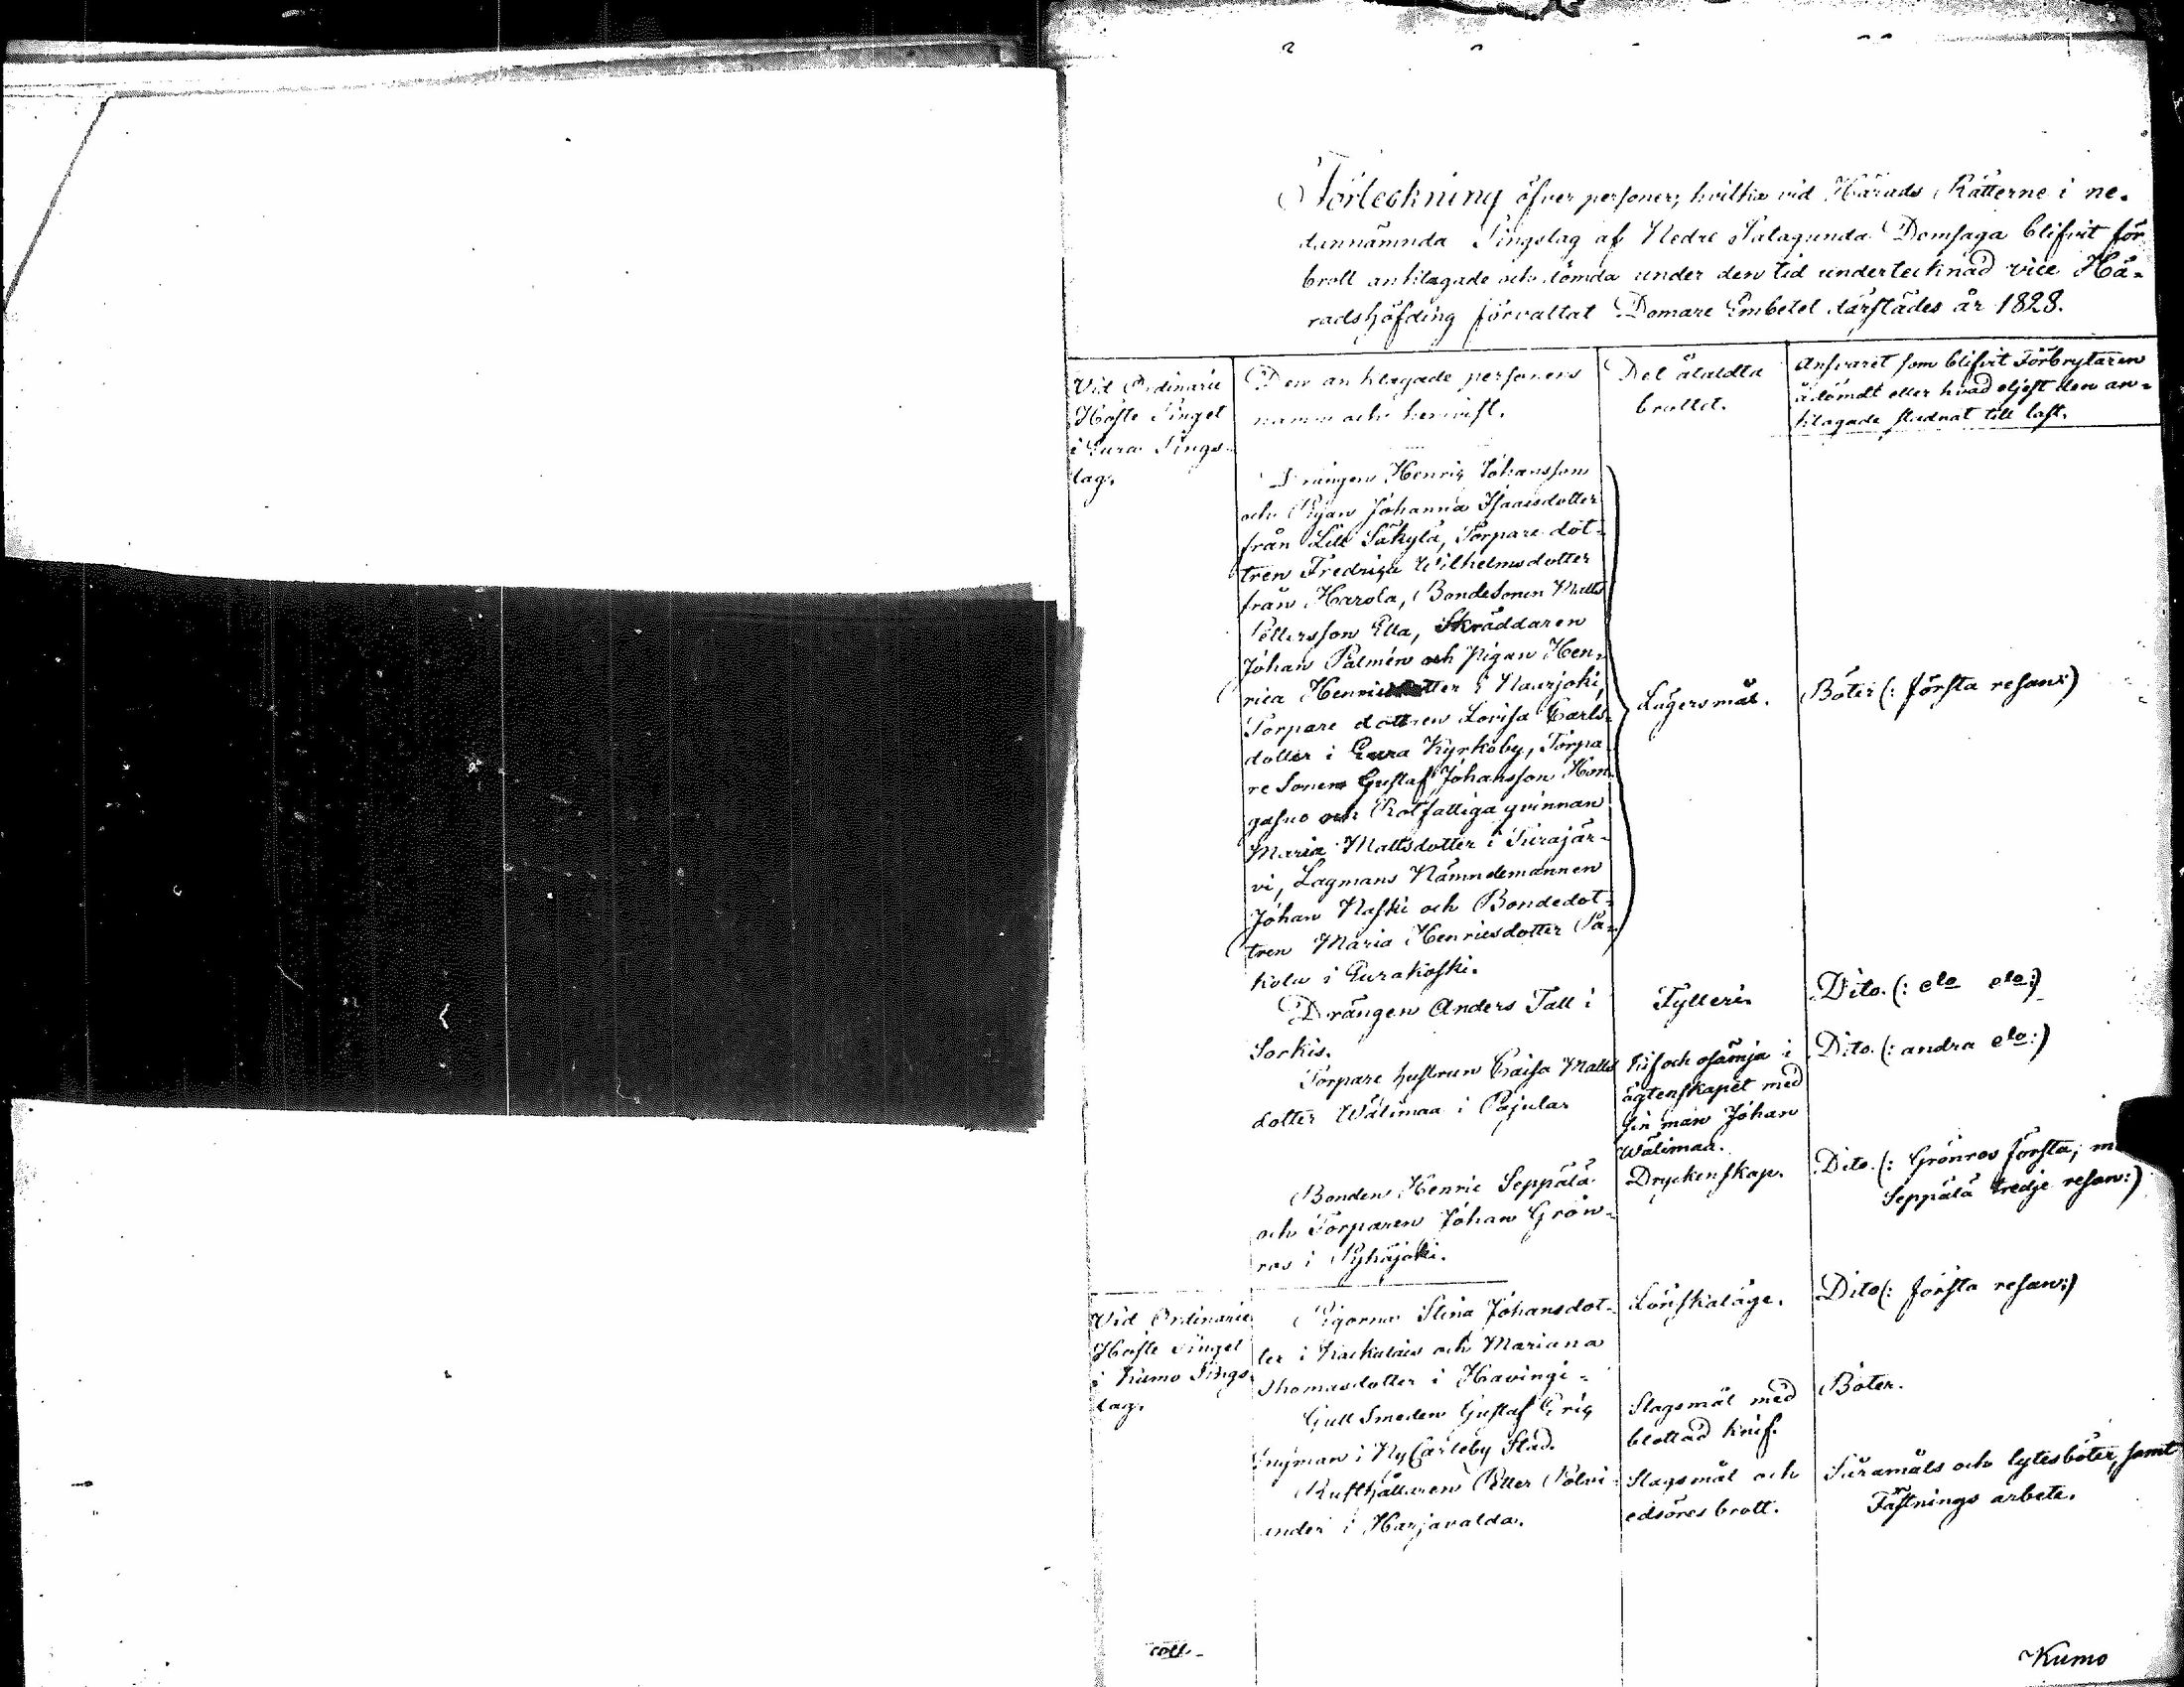 Förteckning öfver personer, hvilka vid Härads Rätterne i ne-
dannämnda Tingslag af Nedre Satagunda Domsaga blifvit för
brott anklagade och dömda under den tid undertecknad vice Hä-
radshöfding förvaltat Domare Embetet därstädes år 1828.
Vid Ordinarie
Höste Tinget
i Eura Tings-
lag.
Den anklagade personens
namn och hemvist.
Det åtaldta
brottet.
Ansvaret som blifvit Förbrytaren
ådömdt eller hvad eljest den an-
klagade stadnat till last.
Drängen Henriq Johansson
och Pigan Johanna Isaacsdotter
från Lill Säkylä, Torpare dot-
tren Fredriqa Wilhelmsdotter
från Harola, BondeSonen Matts
Pettersson Ella, Skräddaren
Johan Palmén och Pigan Hen-
rica Henricsdotter i Naurjoki,
Torpare dottren Lovisa Carls-
dotter i Eura Kyrkoby, Torpa-
re Sonen Gustaf Johansson Hon-
gasuo och Rotfattiga qvinnan
Maria Mattsdotter i Turajär-
vi, Lagmans Nämndemannen
Johan Naski och Bondedot-
tren Maria Henricsdotter Pa-
kola i Eurakoski.
Lägersmål.
Böter (: första resan :)
Drängen Anders Tall i
Sorkis.
Fylleri.
Dito. (: dto dto :)
Torpare hustrun Caisa Matts
dotter Wälimaa i Pajula.
Kif och osämja i
ägtenskapet med
sin man Johan
Wälimaa.
Dito. (: andra dto :)
Bonden Henric Seppälä
och Torparen Johan Grön-
ros i Pyhäjoki.
Dryckenskap.
Dito. (: Grönros första, m
Seppälä tredje resan :)
Vid Ordinarie
Höste Tinget
i Kumo Tings
lag.
Pigorna Stina Johansdot-
ter i Kackulais och Mariana
Thomasdotter i Havingi-
Lönskaläge.
Dito (: första resan :)
Gull Smeden Gustaf Eriq
Ingman i NyCarleby Stad.
Slagsmål med
blottad knif.
Böter.
Rusthållaren Petter Pölni-
ander i Harjavalda.
Slagsmål och
edsöres brott.
Såramåls och lytesböter, samt
Fästnings arbete.
coll.
Kumo